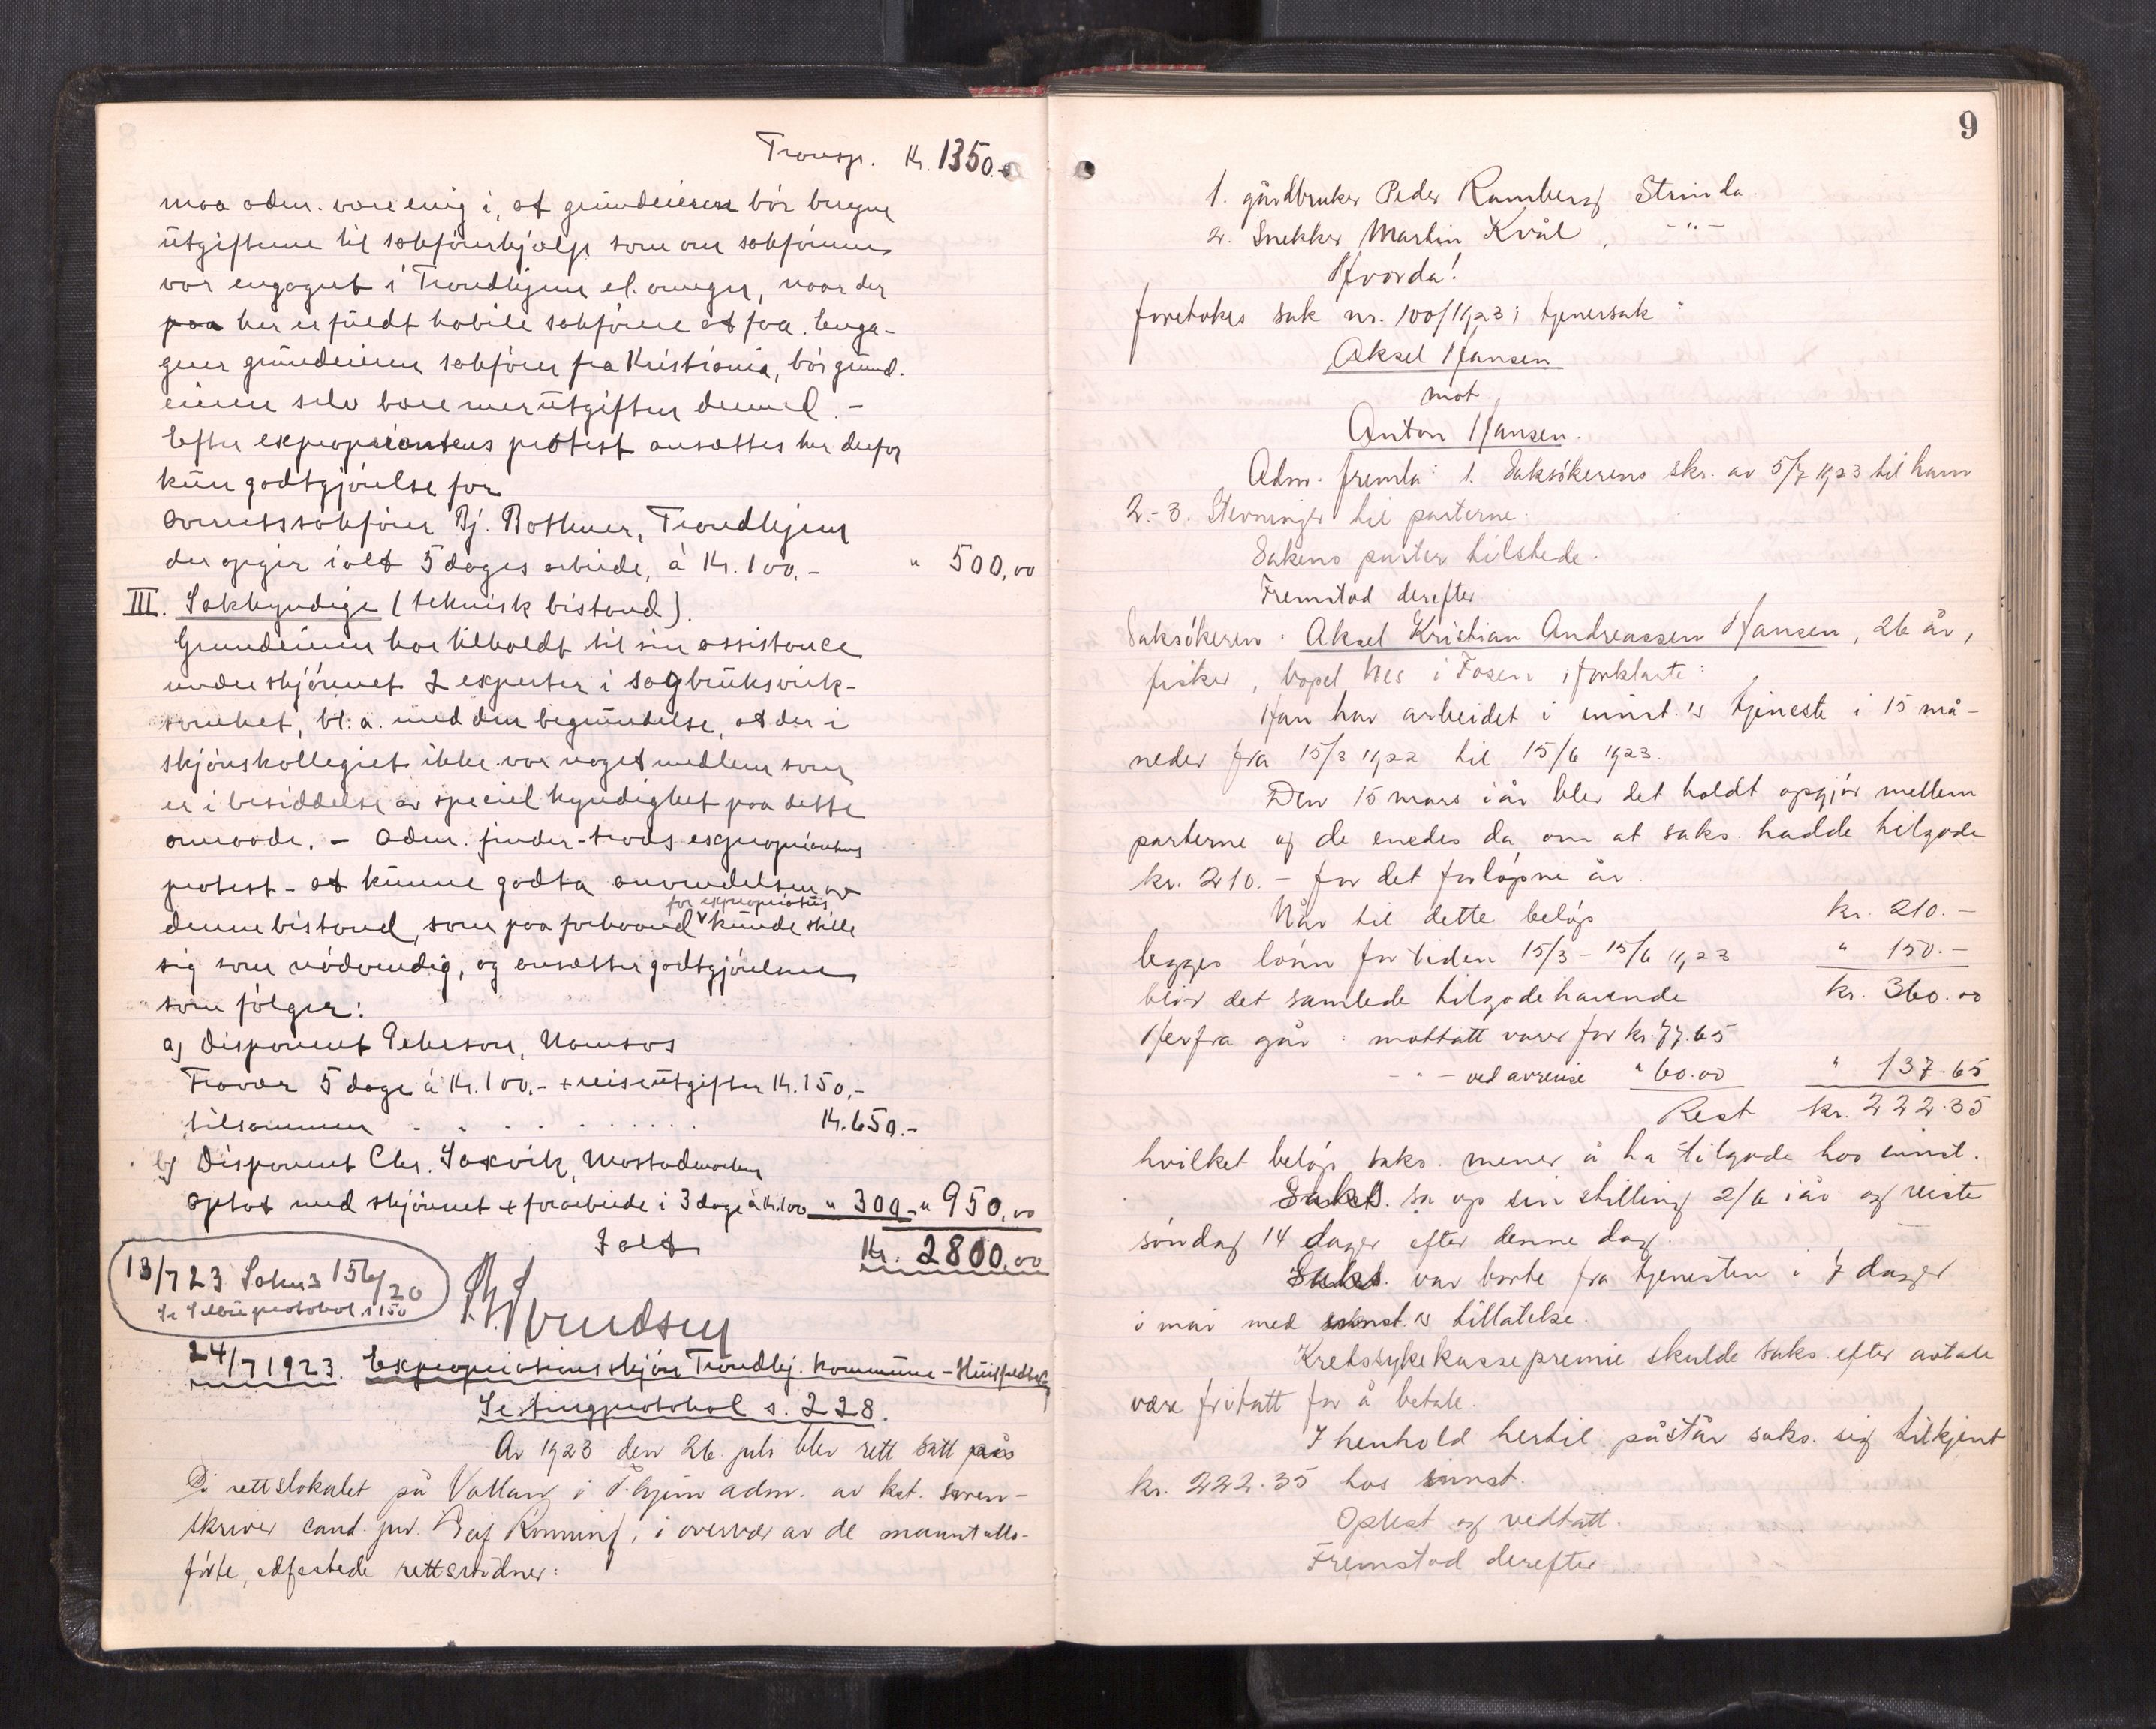 Transp. Kr. 1350.-
maa adm. være enig i, at grundeieren bør beregne
utgifterne til sakførerhjælp som om sakføreren
var engagert i Trondhjem el. omegn, naar der
paa her er fuldt habile sakførere at faa. Enga-
gerer grundeieren sakfører fra Kristiania, bør grund-
eieren selv bære merutgifter dermed. -
Efter expropriantens protest ansættes her derfor
kun godtgjørelse for
overretssakfører Bj. Rothmer, Trondhjem
der opgir ialt 5 dages arbeide, à Kr. 100.- " 500,00
III. Sakkyndige (teknisk bistand).
Grundeieren har tilkaldt til sin assistance
under skjønnet 2 experter i sagbruksvirk-
somhet, bl. a. med den begrundelse, at der i
skjønskollegiet ikke var noget medlem som
er i besiddelse av speciel kyndighet paa dette
omraade. - Adm. finder - trods expropriantens
protest - at kunne godta anvendelsen av
denne bistand, som paa forhaand for expropriatus kunde stille
sig som nødvendig, og ansætter godtgjørelsen
som følger:
a) Disponent Petersen, Namsos
Fravær 5 dage à Kr. 100.- + reiseutgifter Kr. 150,-
tilsammen . . . . . . . . . Kr. 650.-
b) Disponent Chr. Saxvik, Mostadmarken
optat med skjønnet + forarbeide i 3 dage à Kr. 100 " 300,- " 950,00
Ialt Kr. 2800,00
13/7 23 Sak nr 156/20
Se Selbu protokol s 150
24/7 1923. Expropriationsskjøn Trondhj. kommune - Huitfeldt & Co
Se tingprotokol s. 228.
År 1923 den 26. juli blev rett satt på
i rettslokalet på Vollan i T.hjem adm. av kst. soren-
skriver cand. jur. Rønning, i overvær av de manntalls-
førte, edfestede rettsvidner:
9
1. gårdbruker Peder Ramberg Strinda
2. Snekker Martin Kvål, - " -
Hvorda!
foretokes sak nr. 100/1923; tjenersak:
Aksel Hansen
mot
Anton Hansen.
Adm. fremla: 1. Saksøkerens skr. av 5/7 1923 til ham
2.-3. Stevninger til parterne.
Sakens parter tilstede.
Fremstod derefter
Saksøkeren: Aksel Kristian Andreassen Hansen, 26 år,
fisker, bopel Nes i Fosen; forklarte:
Han har arbeidet i innst.'s tjeneste i 15 må-
neder fra 15/3 1922 til 15/6 1923.
Den 15 mars iår blev det holdt opgjør mellem
parterne og de enedes da om at saks. hadde tilgode
kr. 210.- for det forløpne år.
Når til dette beløp kr. 210.-
legges lønn for tiden 15/3 - 15/6 1923 " 150.-
blir det samlede tilgodehavende kr. 360.00
Herfra går: mottatt varer for kr. 77.65
- " - ved avreise " 60.00 " 137.65
Rest kr. 222.35
hvilket beløp saks. mener å ha tilgode hos innst.
Saks. sa op sin stilling 2/6 iår og reiste
søndag 14 dager efter denne dag.
Saks. var borte fra tjenesten i 7 dager
i mai med innst.'s tillatelse.
Kretssykekassepremie skulde saks. efter avtale
være fritatt for å betale.
I henhold hertil påstår saks. sig tilkjent
kr. 222.35 hos innst.
Oplest og vedtatt.
Fremstod derefter